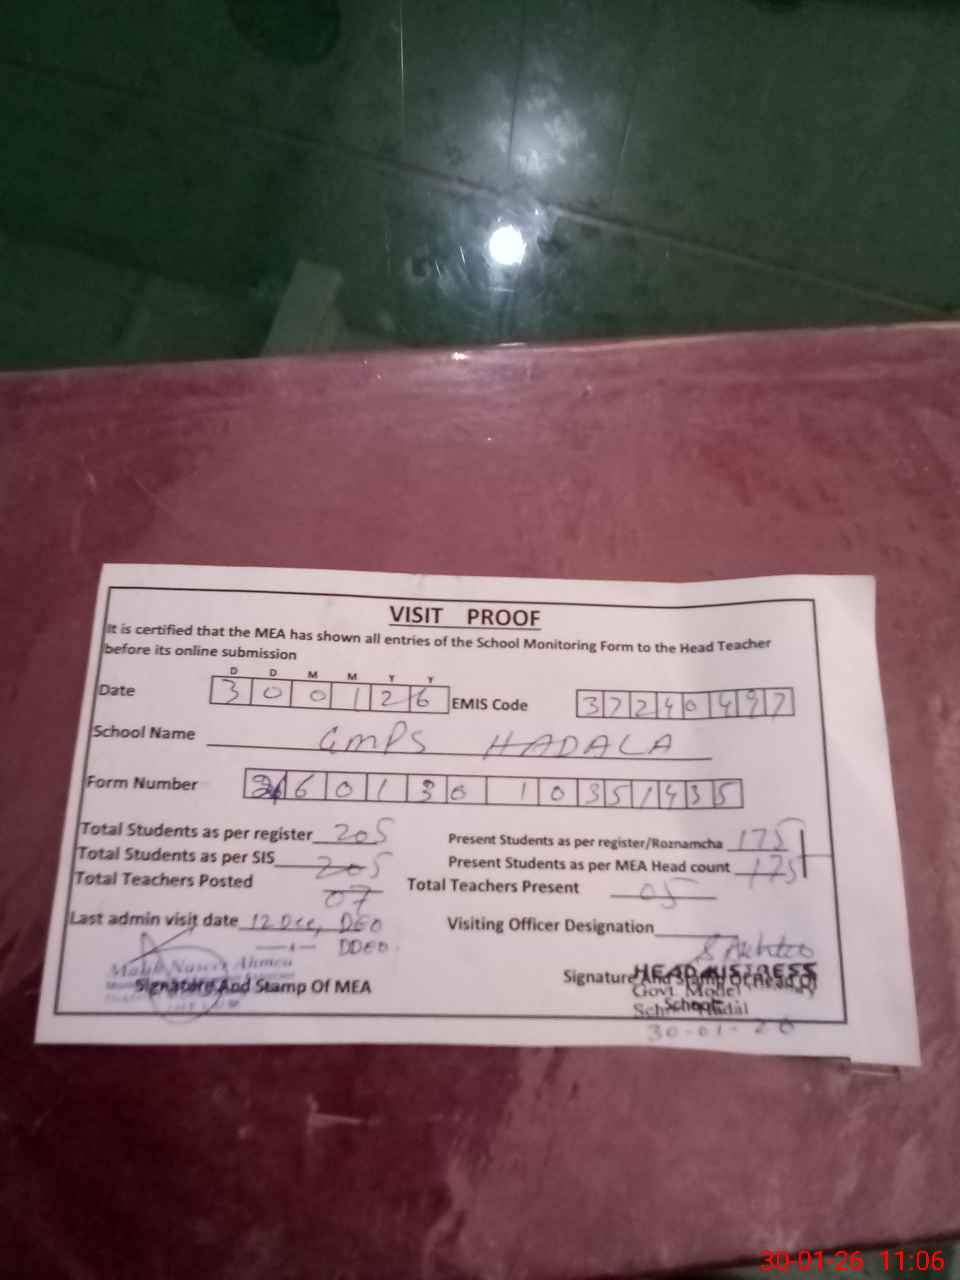 VISIT PROOF
It is certified that the MEA has shown all entries of the School Monitoring Form to the Head Teacher
before its online submission
D D M M Y Y
Date 3 0 0 1 2 6 EMIS Code 3 7 2 4 0 4 9 7
School Name GMPS HADALA
Form Number 2 6 0 1 3 0 1 0 3 5 1 4 3 5
Total Students as per register 205 Present Students as per register/Roznamcha 175
Total Students as per SIS 205 Present Students as per MEA Head count 175
Total Teachers Posted 07 Total Teachers Present 05
Last admin visit date 12 Dec, DEO Visiting Officer Designation
DDEO
Ahmed
Signature And Stamp Of MEA Signature And Stamp Of Head Of
School
HEADMISTRESS
Govt. Model
30-01-26
30-01-26 11:06